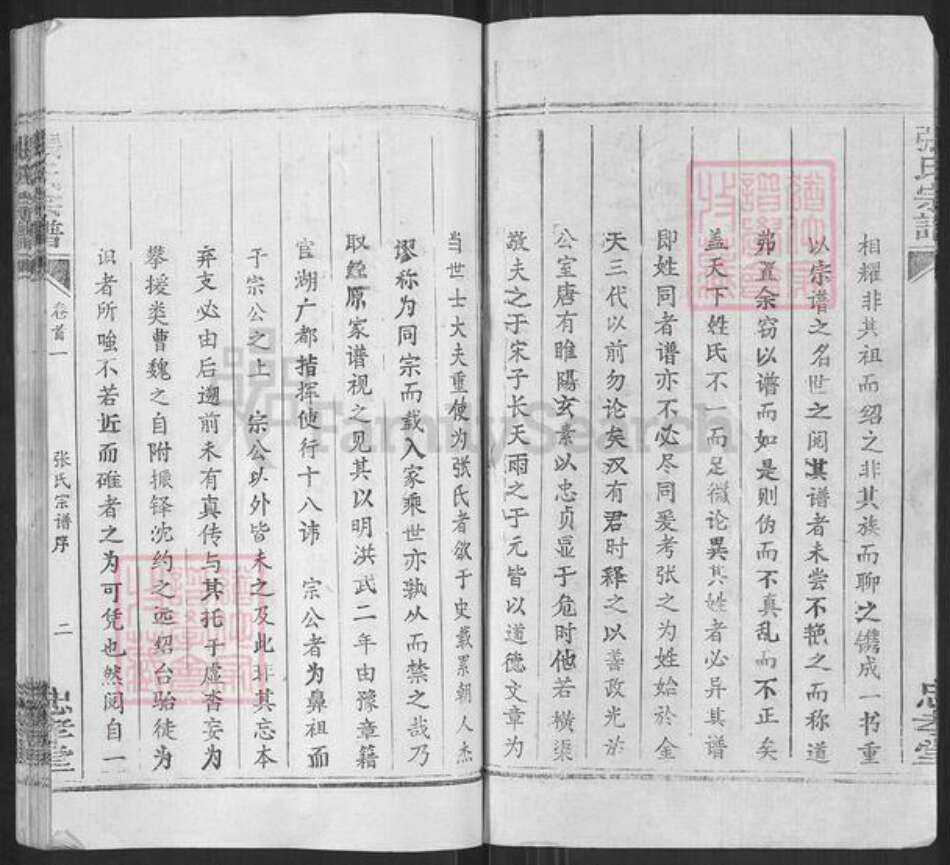 张氏宗谱
忠孝堂
相耀非其祖而绍之非其族而聊之镌成一书重
以宗谱之名世之阅其谱者未尝不艳之而称道
弗置余窃以谱而如是则伪而不真乱而不正矣
盖天下姓氏不一而足微论異其姓者必异其谱
即姓同者谱亦不必尽同爰考张之为姓始於金
天三代以前勿论矣汉有君时释之以善政光治
公室唐有睢陽玄素以忠贞显于危时他若横渠
敬夫之于宋子长天雨之于元皆以道德文章为
当世士大夫重使为张氏者欲于史载累朝人杰
谬称为同宗而载入家乘世亦孰从而禁之哉乃
取经原家谱视之见其以明洪武二年由豫章籍
官湖广都指挥使行十八讳 宗公者为鼻祖而
于宗公之上 宗公以外皆未之及此非其忘本
弃支必由后遡前未有真传与其托于虚杳妄为
攀援类曹魏之自附振铎沈约之远绍台骀徒为
识者所嗤不若近而確者之为可凭也然阅自一
张氏宗谱
卷首一
张氏宗谱序
二
忠孝堂
FamilySearch